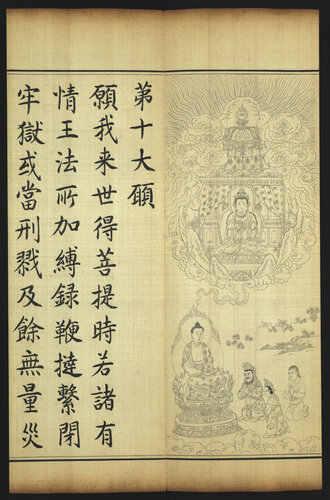 第十大願
願我来世得菩提時若諸有
情王法所加縛録鞭撻繫閉
牢獄或當刑戮及餘無量災